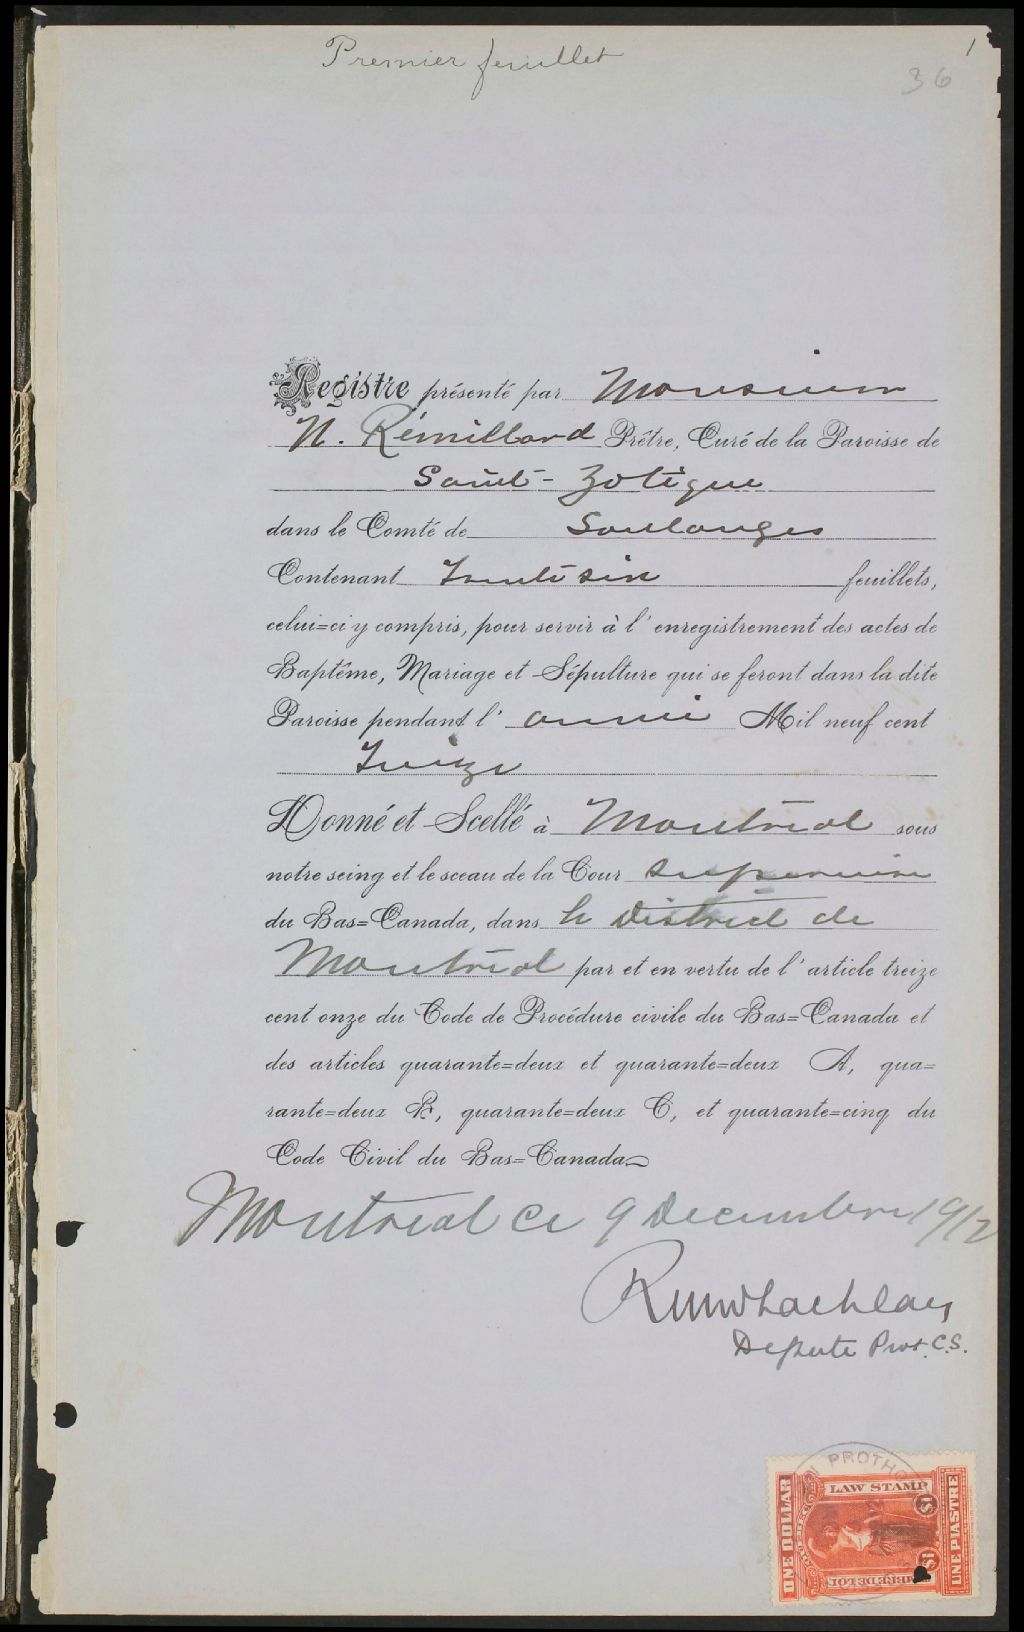 Premier feuillet
1
36
Registre présenté par Monsieur
N. Rémillard Prêtre, Curé de la Paroisse de
Saint-Zotique
dans le Comté de Soulanges
Contenant Trente six feuillets,
celui=ci y compris, pour servir à l'enregistrement des actes de
Baptême, Mariage et Sépulture qui se feront dans la dite
Paroisse pendant l' année Mil neuf cent
Treize
Donné et Scellé à Montréal sous
notre seing et le sceau de la Cour supérieure
du Bas=Canada, dans le District de
Montréal par et en vertu de l'article treize
cent onze du Code de Procédure civile du Bas=Canada et
des articles quarante=deux et quarante=deux A, qua=
rante=deux B, quarante=deux C, et quarante=cinq du
Code Civil du Bas=Canada
Montréal ce 9 Decembre 1912
Depute Prot. C.S.
PROTHO
LAW STAMP
ONE DOLLAR
$1
$1
UNE PIASTRE
TIMBRE DE LOI